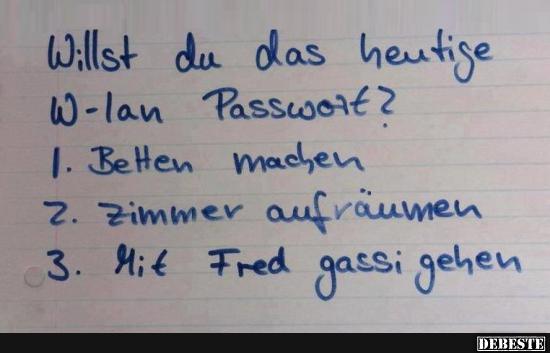 Willst du das heutige
W-lan Passwort?
1. Betten machen
2. Zimmer aufräumen
3. Mit Fred gassi gehen
DEBESTE